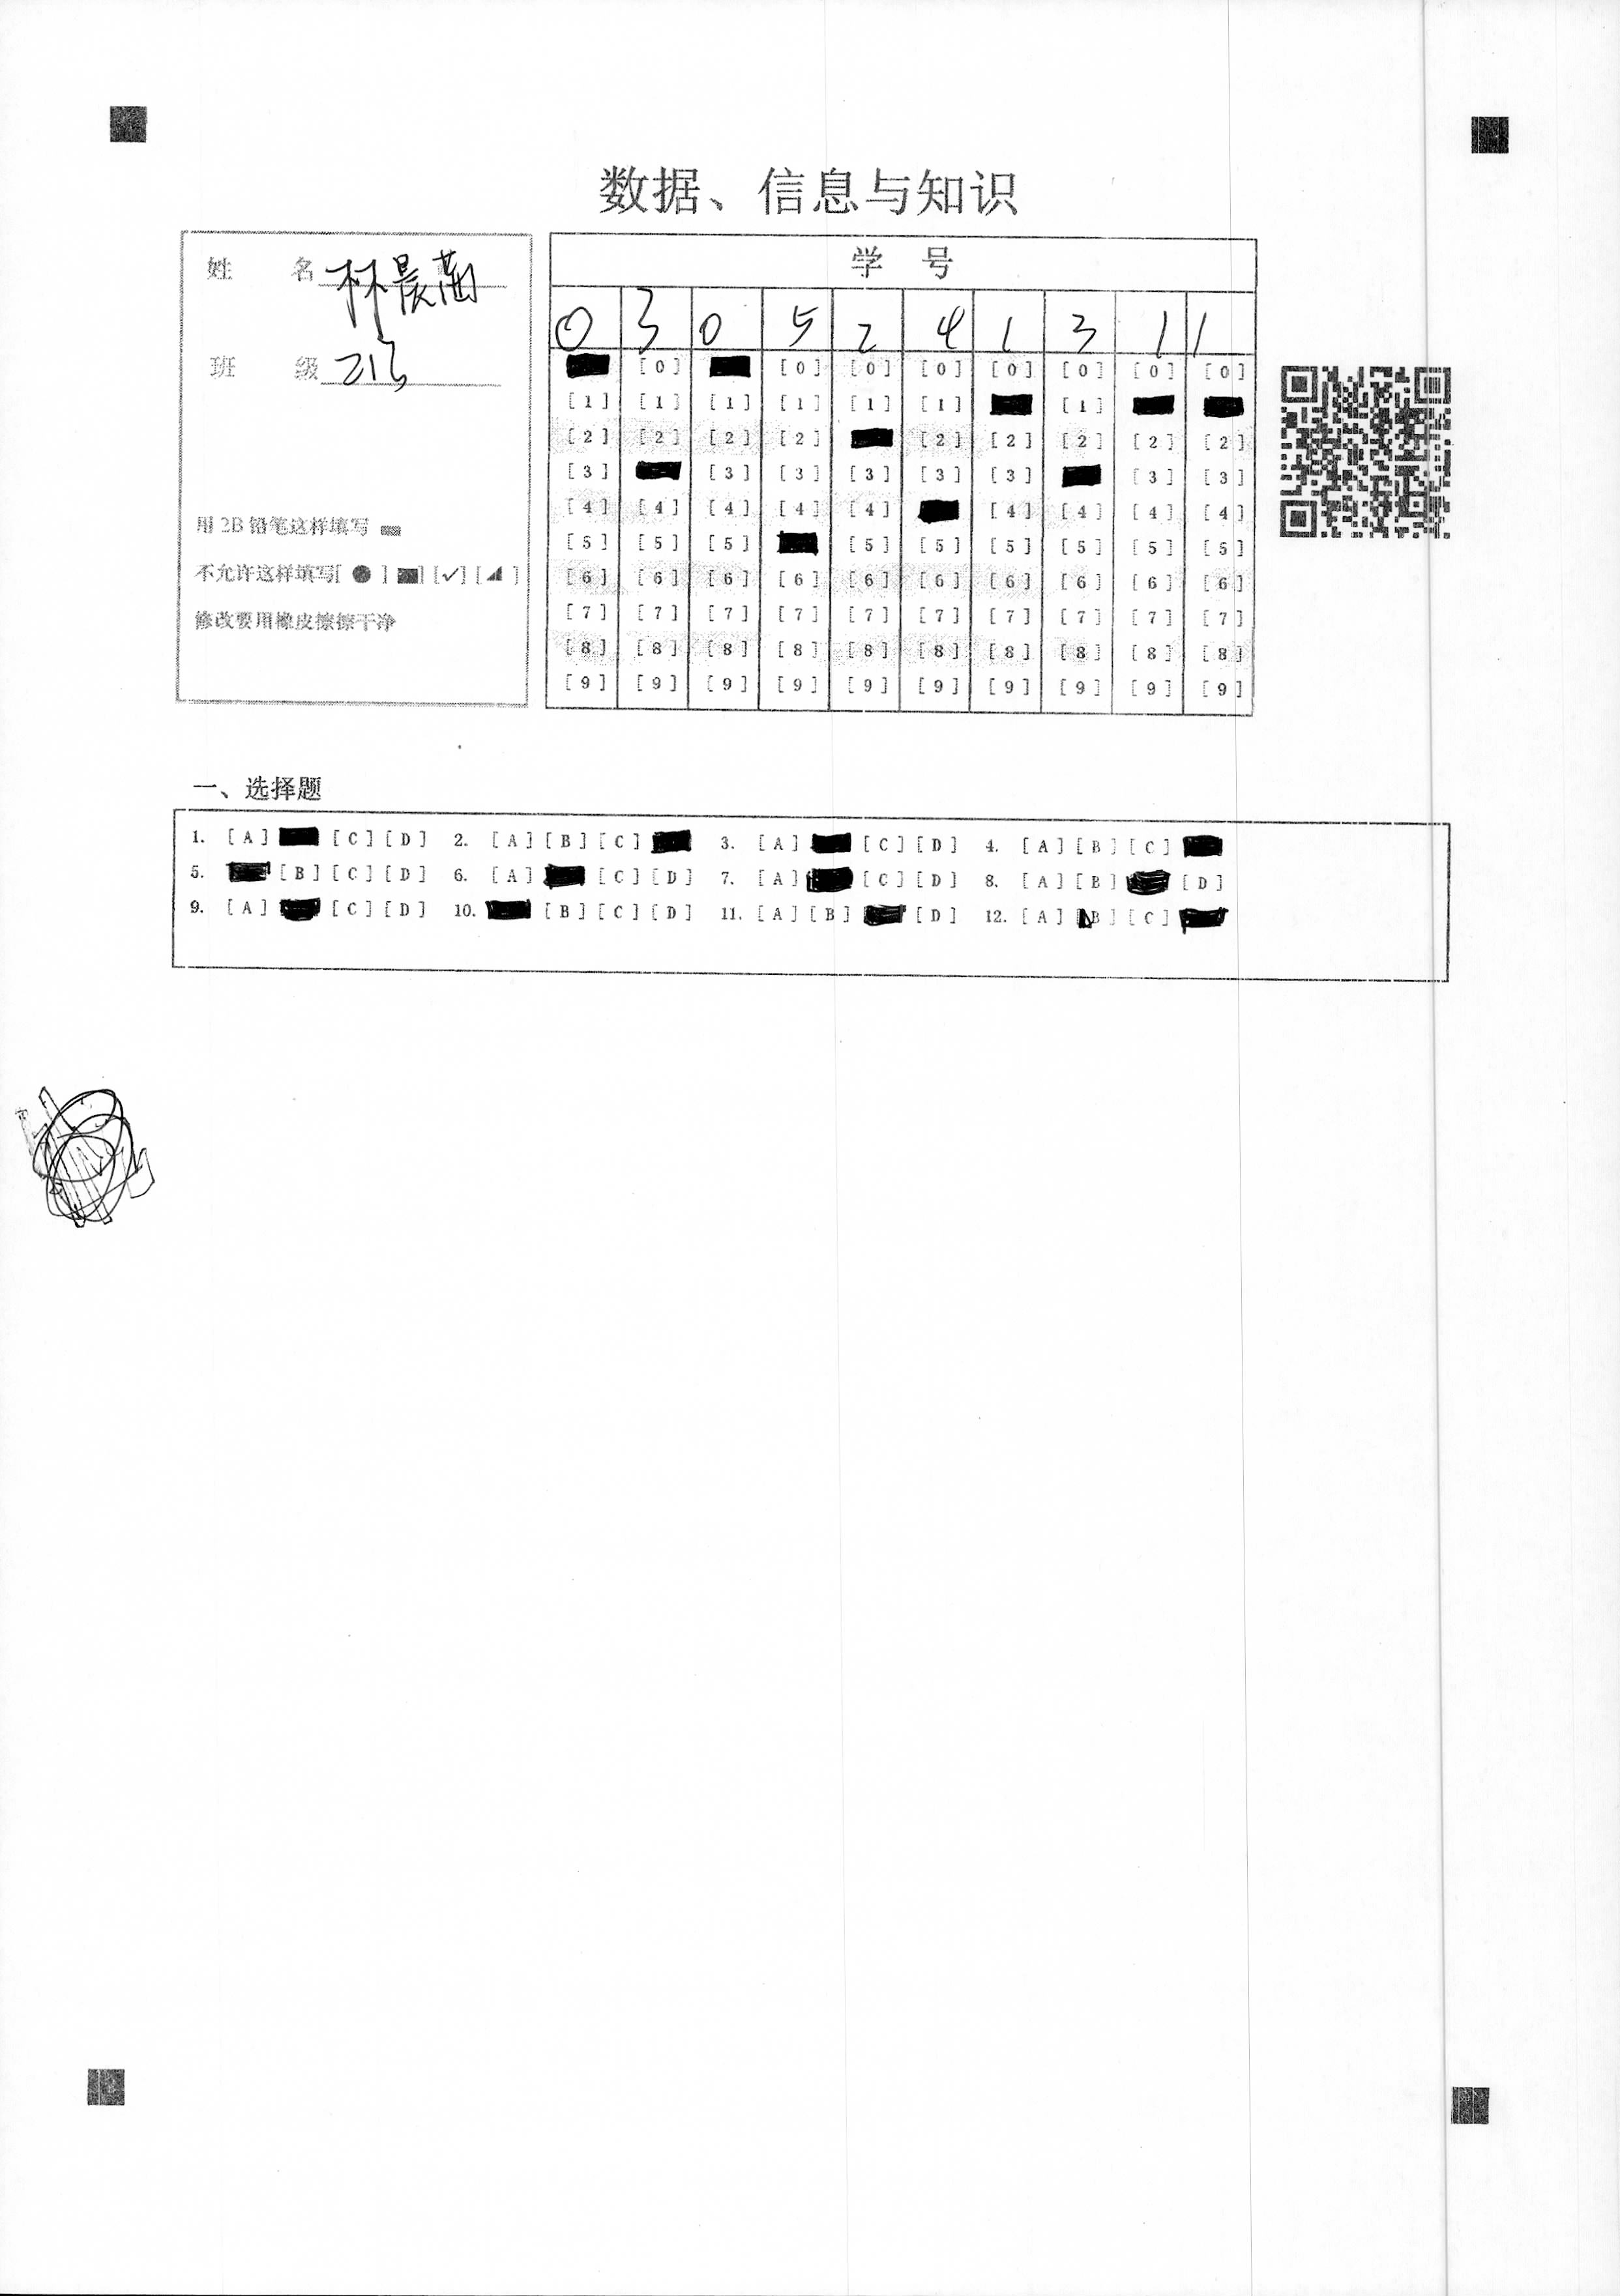 数据、信息与知识
姓 名 林晨菡
班 级 213
用 2B 铅笔这样填写
不允许这样填写[ ● ] [■] [✓] [◢ ]
修改要用橡皮擦擦干净
学 号
0 3 0 5 2 4 1 3 1 1
[0] [0] [0] [0] [0] [0] [0] [0]
[1] [1] [1] [1] [1] [1] [1]
[2] [2] [2] [2] [2] [2] [2] [2] [2]
[3] [3] [3] [3] [3] [3] [3] [3]
[4] [4] [4] [4] [4] [4] [4] [4] [4]
[5] [5] [5] [5] [5] [5] [5] [5] [5]
[6] [6] [6] [6] [6] [6] [6] [6] [6] [6]
[7] [7] [7] [7] [7] [7] [7] [7] [7] [7]
[8] [8] [8] [8] [8] [8] [8] [8] [8] [8]
[9] [9] [9] [9] [9] [9] [9] [9] [9] [9]
一、选择题
1. [A] [C] [D] 2. [A] [B] [C] 3. [A] [C] [D] 4. [A] [B] [C]
5. [B] [C] [D] 6. [A] [C] [D] 7. [A] [C] [D] 8. [A] [B] [D]
9. [A] [C] [D] 10. [B] [C] [D] 11. [A] [B] [D] 12. [A] [B] [C]